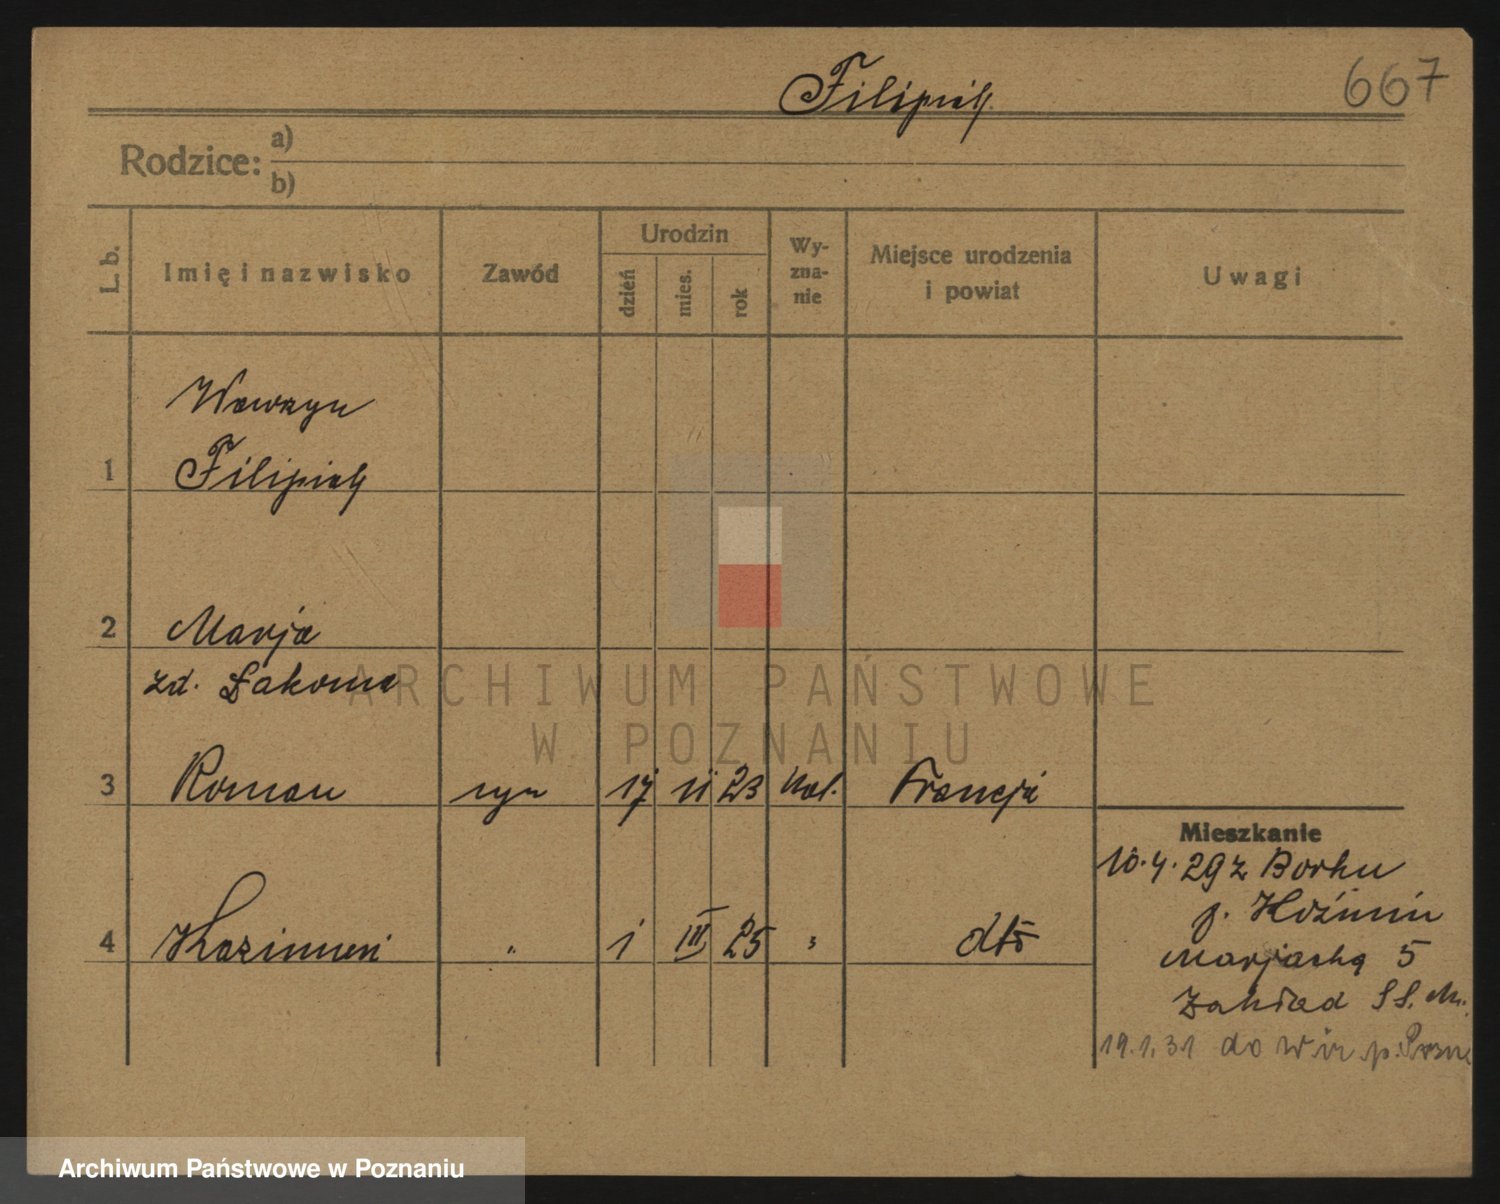 Filipiak
667
Rodzice: a)
b)
L. b.
Imię i nazwisko
Zawód
Urodzin
dzień
mies.
rok
Wy-
zna-
nie
Miejsce urodzenia
i powiat
Uwagi
Wawrzyn
1 Filipiak
2 Marja
zd. Łakoma
3 Roman syn 17 11 23 kat. Francja
4 Kazimierz " 1 III 25 " dtō
Mieszkanie
10.4.29 z Borku
p. Koźmin
Marjacka 5
Zakład SS. M.
19.1.31 do Wir p. Pozn
ARCHIWUM PAŃSTWOWE
W POZNANIU
Archiwum Państwowe w Poznaniu